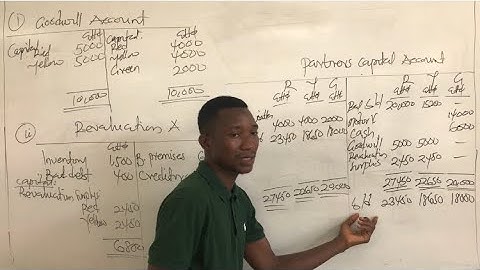 ① Goodwill Account
GH¢ GH¢
Capital: Capital:
Red 5000 Red 4000
Yellow 5000 Yellow 4000
Green 2000
10,000 10,000
Partners Capital Account
R Y G R Y G
GH¢ GH¢ GH¢ GH¢ GH¢ GH¢
Bal b/d 20,000 15200 —
14000
4000 4000 2000 Cash 6000
23450 18650 18000 Goodwill 5000 5000 —
Revaluation
Surplus 2450 2450 —
27450 22650 20,000 27450 22650 20,000
b/d 23450 18650 18000
ii Revaluation A
GH¢
Inventory 1,500 premises
Bad debt 400 Creditors
Capital:
Revaluation Surplus
Red 2450
Yellow 2450
6800